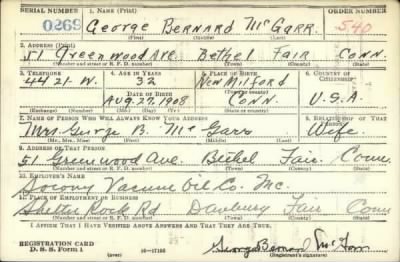 SERIAL NUMBER 1. NAME (Print) ORDER NUMBER
0269 George Bernard McGarr 540
(First) (Middle) (Last)
2. ADDRESS (Print)
51 Greenwood Ave. Bethel Fair Conn.
(Number and street or R. F. D. number) (Town) (County) (State)
3. TELEPHONE 4. AGE IN YEARS 5. PLACE OF BIRTH 6. COUNTRY OF CITIZENSHIP
4421 W. 32 New Milford
DATE OF BIRTH (Town or county)
Aug. 27. 1908 Conn. U.S.A.
(Exchange) (Number) (Mo.) (Day) (Yr.) (State or country)
7. NAME OF PERSON WHO WILL ALWAYS KNOW YOUR ADDRESS 8. RELATIONSHIP OF THAT PERSON
Mrs. George B. McGarr Wife.
(Mr., Mrs., Miss) (First) (Middle) (Last)
9. ADDRESS OF THAT PERSON
51 Greenwood Ave. Bethel Fair. Conn
(Number and street or R. F. D. number) (Town) (County) (State)
10. EMPLOYER'S NAME
Socony Vacuum Oil Co. Inc.
11. PLACE OF EMPLOYMENT OR BUSINESS
Shelter Rock Rd Danbury Fair Conn
(Number and street or R. F. D. number) (Town) (County) (State)
I AFFIRM THAT I HAVE VERIFIED ABOVE ANSWERS AND THAT THEY ARE TRUE.
REGISTRATION CARD
D. S. S. Form 1 (over) 16—17105 George Bernard McGarr
(Registrant's signature)